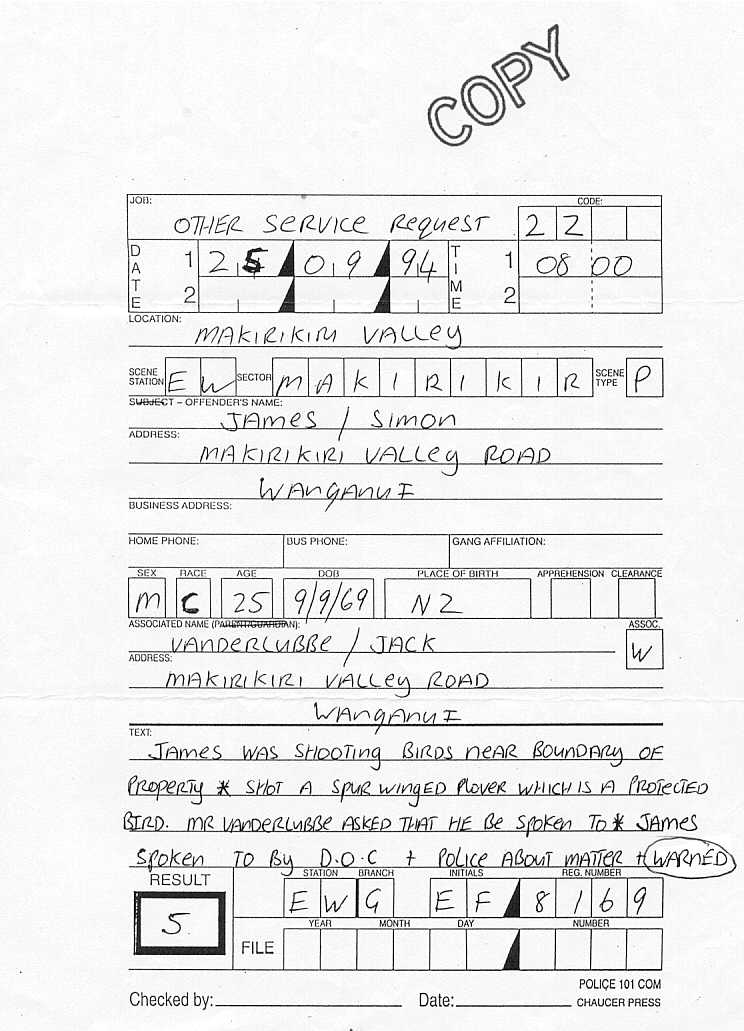 COPY
JOB:
CODE:
OTHER SERVICE REQUEST 2 2
DATE 1 25 09 94 TIME 1 08 00
2 2
LOCATION:
MAKIRIKIRI VALLEY
SCENE STATION E W SECTOR M A K I R I K I R SCENE TYPE P
SUBJECT – OFFENDER'S NAME:
JAMES / SIMON
ADDRESS:
MAKIRIKIRI VALLEY ROAD
WANGANUI
BUSINESS ADDRESS:
HOME PHONE: BUS PHONE: GANG AFFILIATION:
SEX RACE AGE DOB PLACE OF BIRTH APPREHENSION CLEARANCE
M C 25 9/9/69 NZ
ASSOCIATED NAME (PARENT/GUARDIAN): ASSOC.
VANDERLUBBE / JACK W
ADDRESS:
MAKIRIKIRI VALLEY ROAD
WANGANUI
TEXT:
JAMES WAS SHOOTING BIRDS NEAR BOUNDARY OF
PROPERTY * SHOT A SPUR WINGED PLOVER WHICH IS A PROTECTED
BIRD. MR VANDERLUBBE ASKED THAT HE BE SPOKEN TO * JAMES
SPOKEN TO BY D.O.C + POLICE ABOUT MATTER + WARNED
RESULT STATION BRANCH INITIALS REG. NUMBER
5 E W G E F 8 1 6 9
YEAR MONTH DAY NUMBER
FILE
POLICE 101 COM
Checked by: Date: CHAUCER PRESS